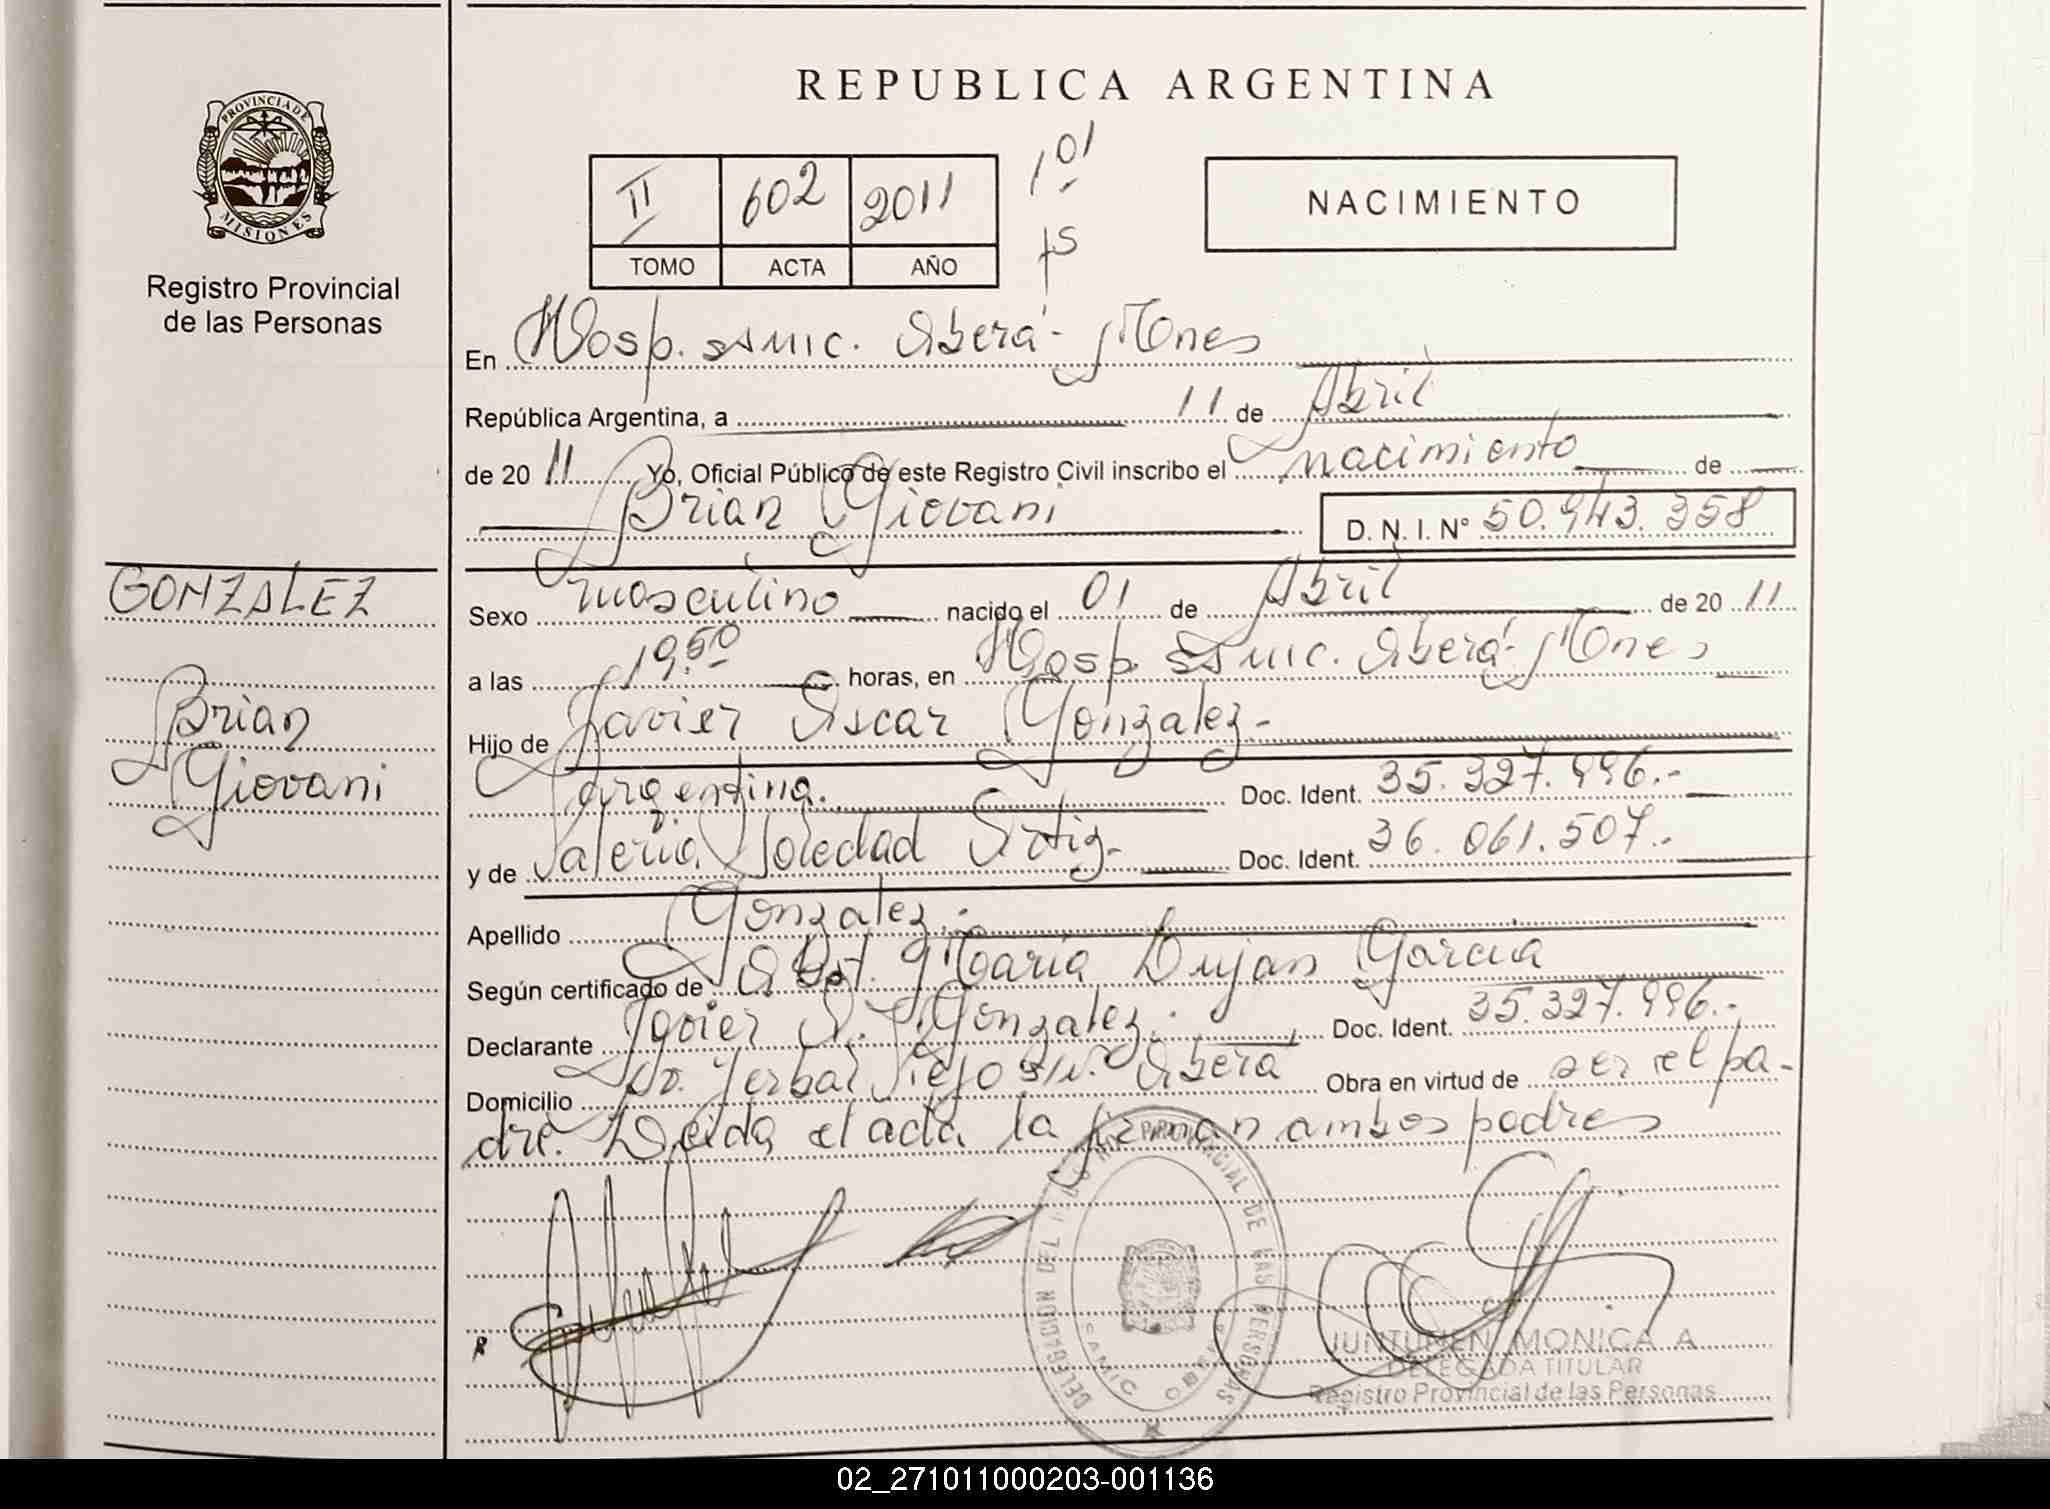 REPUBLICA ARGENTINA
PROVINCIA DE MISIONES
Registro Provincial
de las Personas
II 602 2011 101
TOMO ACTA AÑO fs
NACIMIENTO
En Hosp. SAMIC. Oberá - Mnes
República Argentina, a 11 de Abril
de 20 11 Yo, Oficial Público de este Registro Civil inscribo el nacimiento de
Brian Giovani D. N. I. N° 50.943.358
GONZALEZ
Brian
Giovani
Sexo masculino nacido el 01 de Abril de 20 11
a las 19,50 horas, en Hosp. SAMIC. Oberá - Mnes
Hijo de Javier Oscar Gonzalez.-
Argentina. Doc. Ident. 35.327.996.-
y de Valeria Soledad Ortiz.- Doc. Ident. 36.061.507.-
Apellido Gonzalez.-
Según certificado de Obst. Maria Lujan Garcia
Declarante Javier O. Gonzalez. Doc. Ident. 35.327.996.-
Domicilio Bo. Yerbal Viejo s/n. Oberá Obra en virtud de ser el pa-
dre. Leida el acta la firman ambos padres
DELEGACION DEL REGISTRO PROVINCIAL DE LAS PERSONAS
SAMIC OBERA
JUNTUNEN MONICA A
DELEGADA TITULAR
Registro Provincial de las Personas
02_271011000203-001136